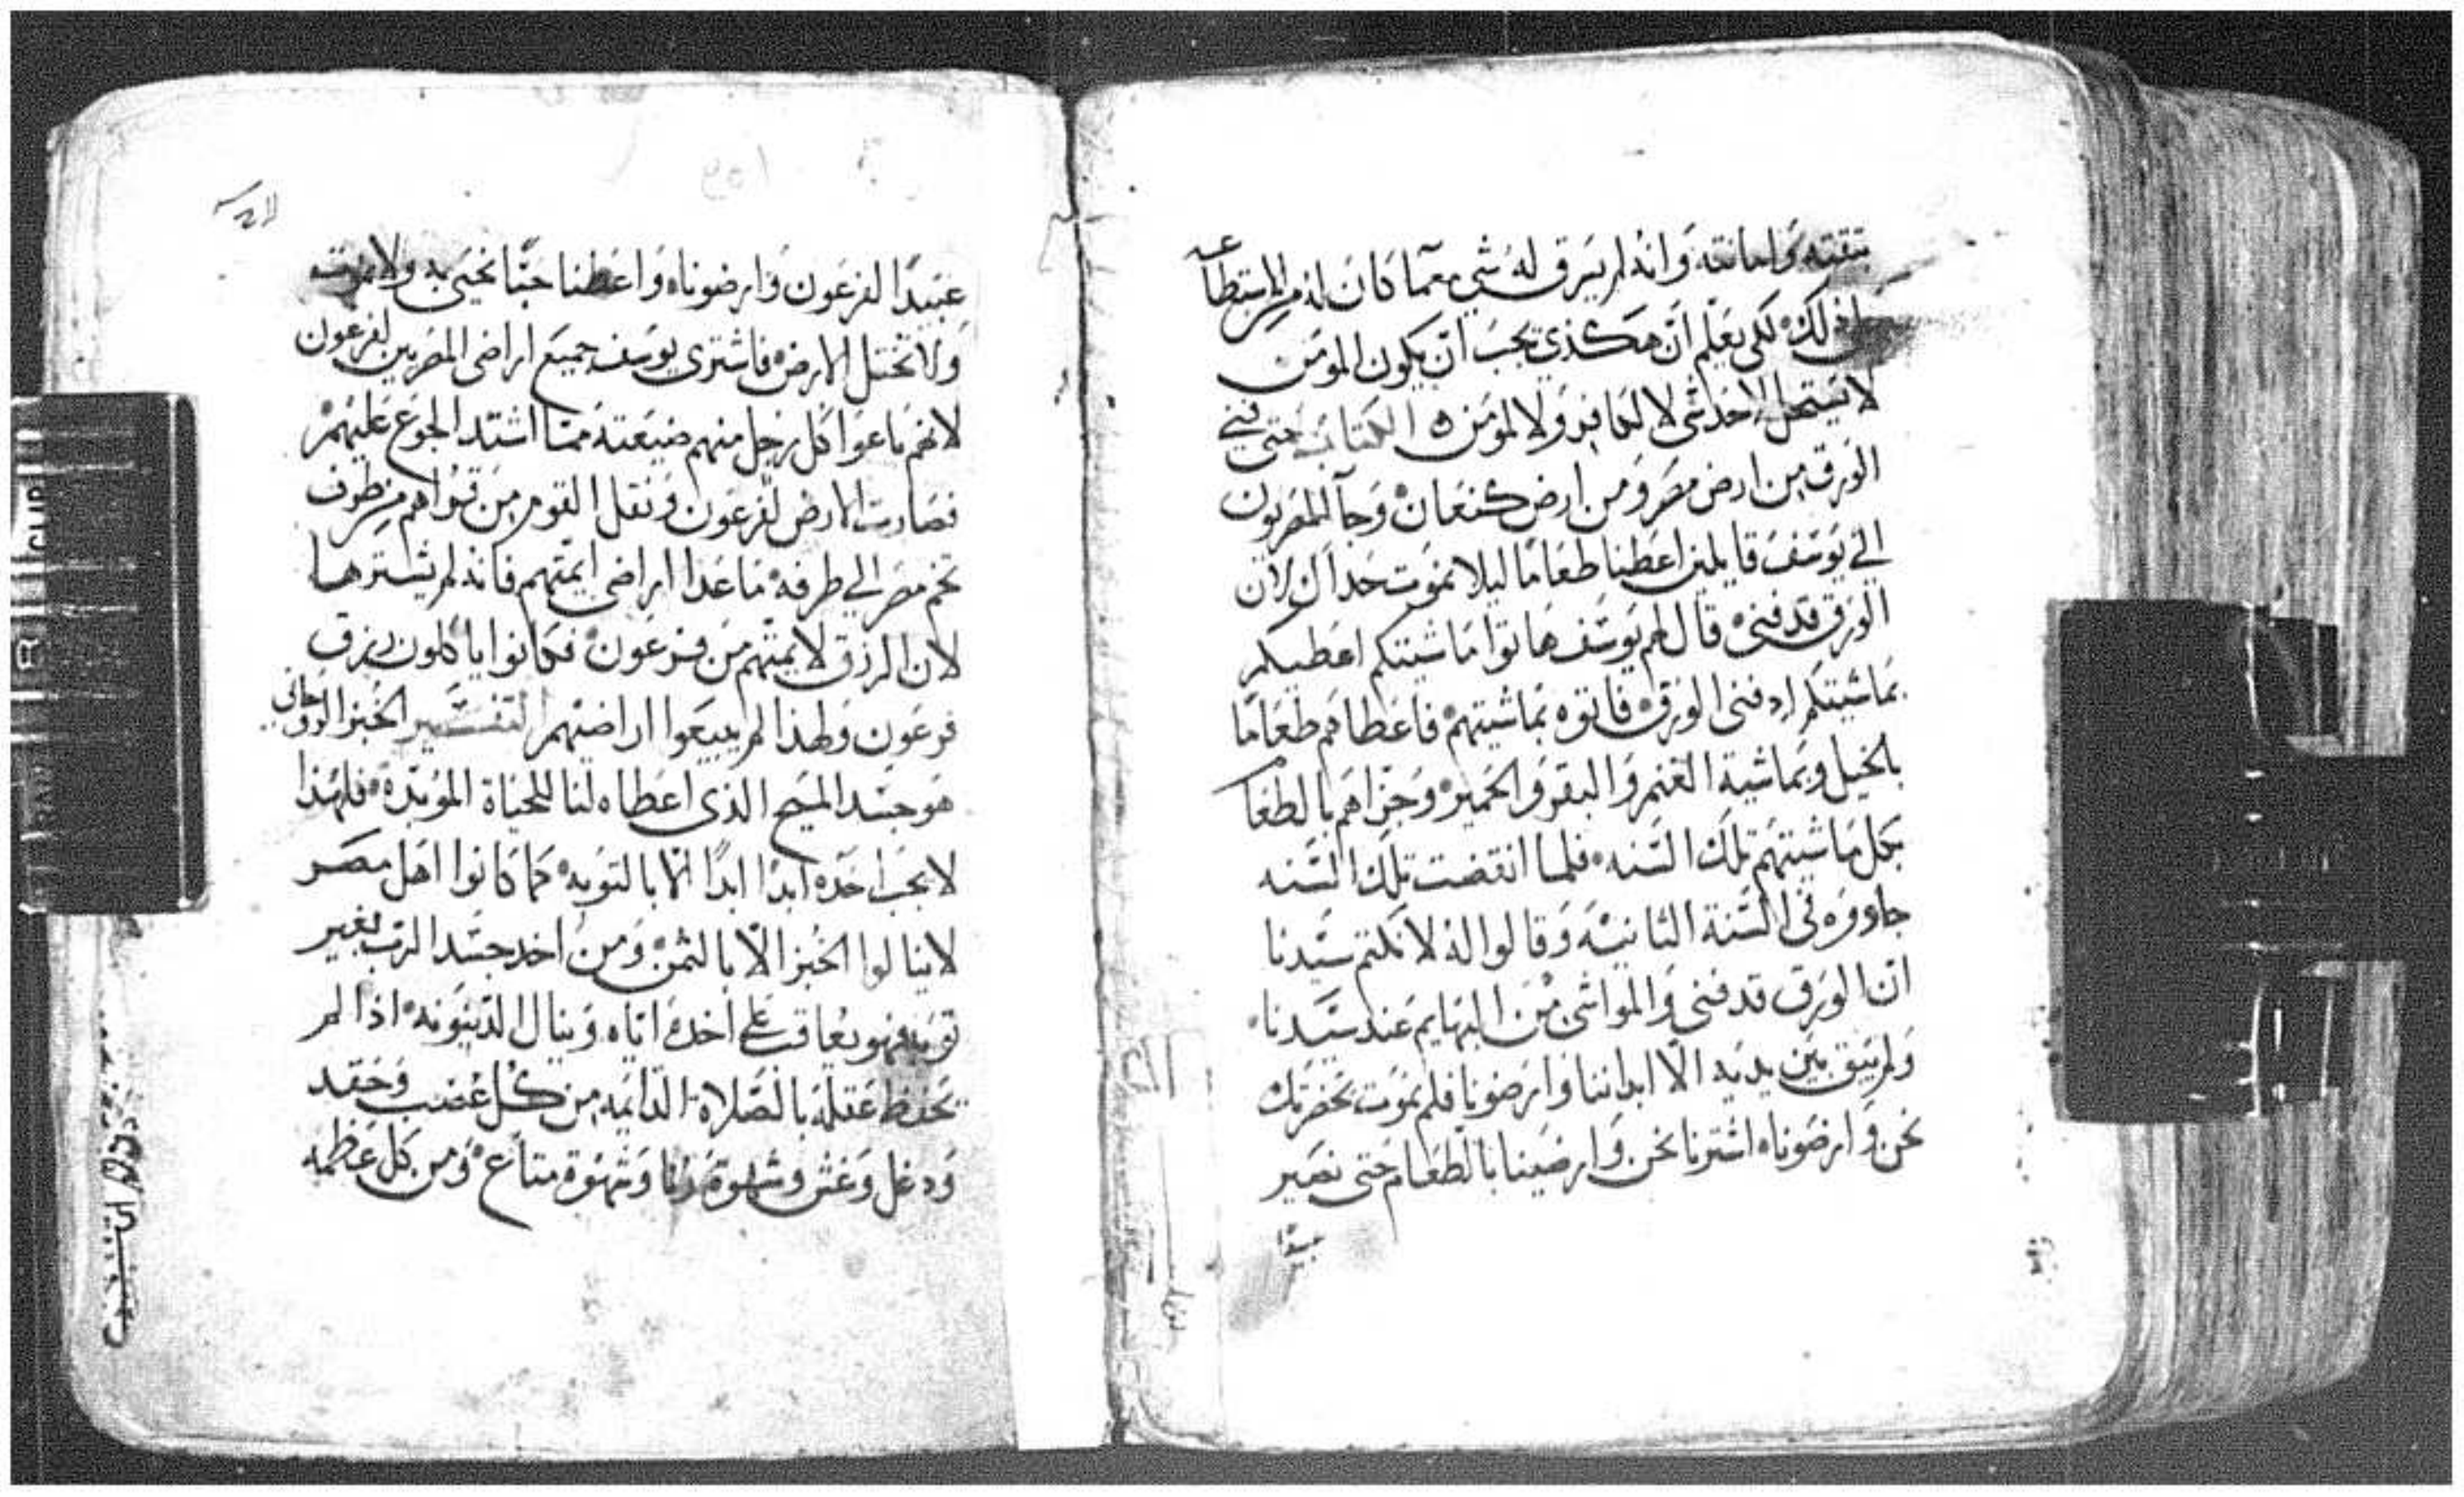 بثقته وامانته وانه لم يسرق له شي مما كان له من الاستطاعه
لذلك لكي يعلم ان هكذي يجب ان يكون المومن
لا يستحل لاحد شي لا لكافر ولا لمومن ٥ الكتاب حتى فني
الورق من ارض مصر ومن ارض كنعان وجآ المصريون
الي يوسف قايلين اعطنا طعامًا ليلا نموت حداك لان
الورق قد فني قال لهم يوسف هاتوا ماشيتكم اعطيكم
بماشيتكم اد فنى الورق فاتوه بماشيتهم فاعطاهم طعامًا
بالخيل وبماشية الغنم والبقر والحمير وجزاهم بالطعا
بكل ماشيتهم تلك السنه فلما انقضت تلك السنه
جاووه في السنة الثانيه وقالوا له لا نكتم سيدنا
ان الورق قد فني والمواشي من البهايم عند سيدنا
ولم يبق بين يديه الا ابداننا وارضونا فلم نموت بحضرتك
نحن وارضوناه اشترنا نحن وارضينا بالطعام حتى نصير
عبيدًا
عبيدًا لفرعون وارضوناه واعطنا حبًا نحيى به ولا نموت
ولا تختل الارض فاشترى يوسف جميع اراضى المصريين لفرعون
لانهم باعوا كل رجل منهم ضيعته مما اشتد الجوع عليهم
فصارت الارض لفرعون ونقل القوم من قراهم من طرف
تخم مصر الي طرفه ما عدا اراضى ايمتهم فانه لم يشترها
لان الرزق لايمتهم من فرعون فكانوا ياكلون رزق
فرعون ولهذا لم يبيعوا اراضيهم التفسير الخبز الروحاني
هو جسد المسيح الذى اعطاه لنا للحياة الموبدة فلهذا
لا يجب اخده ابدا ابدا الا بالتوبه كما كانوا اهل مصر
لا ينالوا الخبز الا بالثمن ومن اخد جسد الرب بغير
توبه فهو يعاقب علي اخده اياه وينال الدينونه اذا لم
يحفظ عقله بالصلاة الدايمه من كل غضب وحقد
ودغل وغش وشهوة زنا وشهوة متاع ومن كل عظمه